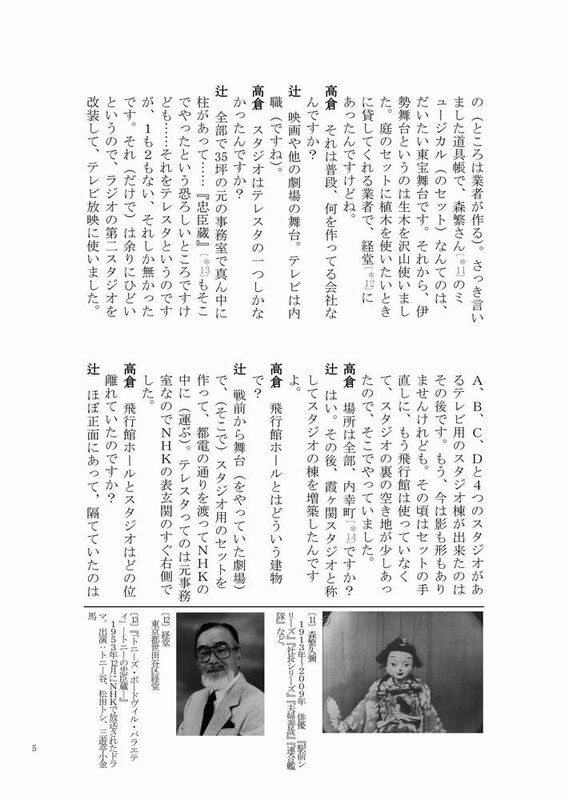 の（ところは業者が作る）。さっき言い
ました道具帳で、森繁さん［＊11］のミ
ュージカル（のセット）なんてのは、
だいたい東宝舞台です。それから、伊
勢舞台というのは生木を沢山使いまし
た。庭のセットに植木を使いたいとき
に貸してくれる業者で、経堂［＊12］に
あったんですけどね。
高倉　それは普段、何を作ってる会社な
んですか？
辻　映画や他の劇場の舞台。テレビは内
職（ですね）。
高倉　スタジオはテレスタの一つしかな
かったんですか？
辻　全部で35坪の元の事務室で真ん中に
柱があって……『忠臣蔵』［＊13］もそこ
でやったという恐ろしいところですけ
ども……それをテレスタというのです
が、１も２もない、それしか無かった
です。それ（だけで）は余りにひどい
というので、ラジオの第二スタジオを
改装して、テレビ放映に使いました。
Ａ、Ｂ、Ｃ、Ｄと４つのスタジオがあ
るテレビ用のスタジオ棟が出来たのは
その後です。もう、今は影も形もあり
ませんけれども。その頃はセットの手
直しに、もう飛行館は使っていなく
て、スタジオの裏の空き地が少しあっ
たので、そこでやっていました。
高倉　場所は全部、内幸町［＊14］ですか？
辻　はい。その後、霞ヶ関スタジオと称
してスタジオの棟を増築したんです
よ。
高倉　飛行館ホールとはどういう建物
で？
辻　戦前から舞台（をやっていた劇場）
で、（そこで）スタジオ用のセットを
作って、都電の通りを渡ってＮＨＫの
中に（運ぶ）。テレスタってのは元事務
室なのでＮＨＫの表玄関のすぐ右側で
した。
高倉　飛行館ホールとスタジオはどの位
離れていたのですか？
辻　ほぼ正面にあって、隔てていたのは
［11］森繁久彌
１９１３年～２００９年　俳優　『駅前シ
リーズ』『社長シリーズ』『夫婦善哉』『連合艦
隊』など。
［12］経堂
東京都世田谷区経堂
［13］『トニーズ・ボードヴィル・バラエテ
ィ』―トニーの忠臣蔵―』
１９５３年12月にＮＨＫで放送されたドラ
マ。出演：トニー谷、松田トシ、三遊亭小金
馬
5